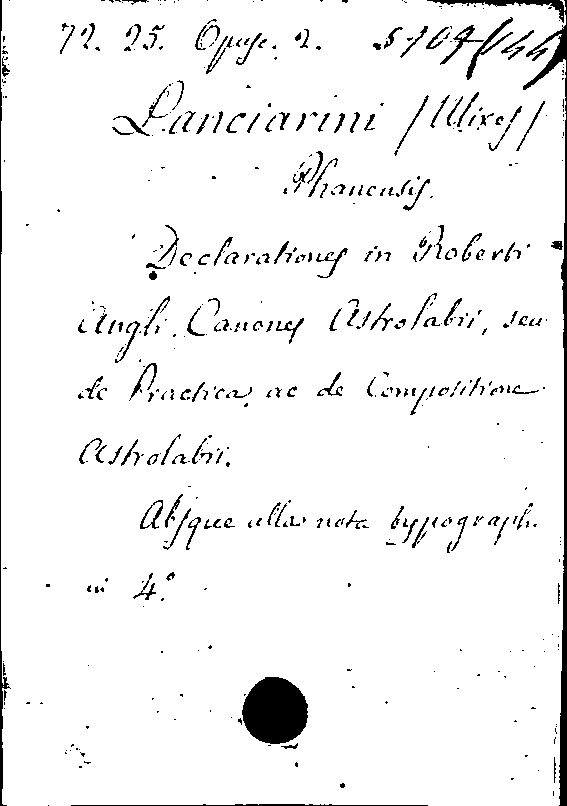 72. 25. Opusc. 2.
Lanciarini /Ulixes/
Phanensis.
Declarationes in Roberti
Angli Canones Astrolabii, seu
de Practica, ac de Compositione
Astrolabii.
Absque ulla nota typograph.
in 4.°